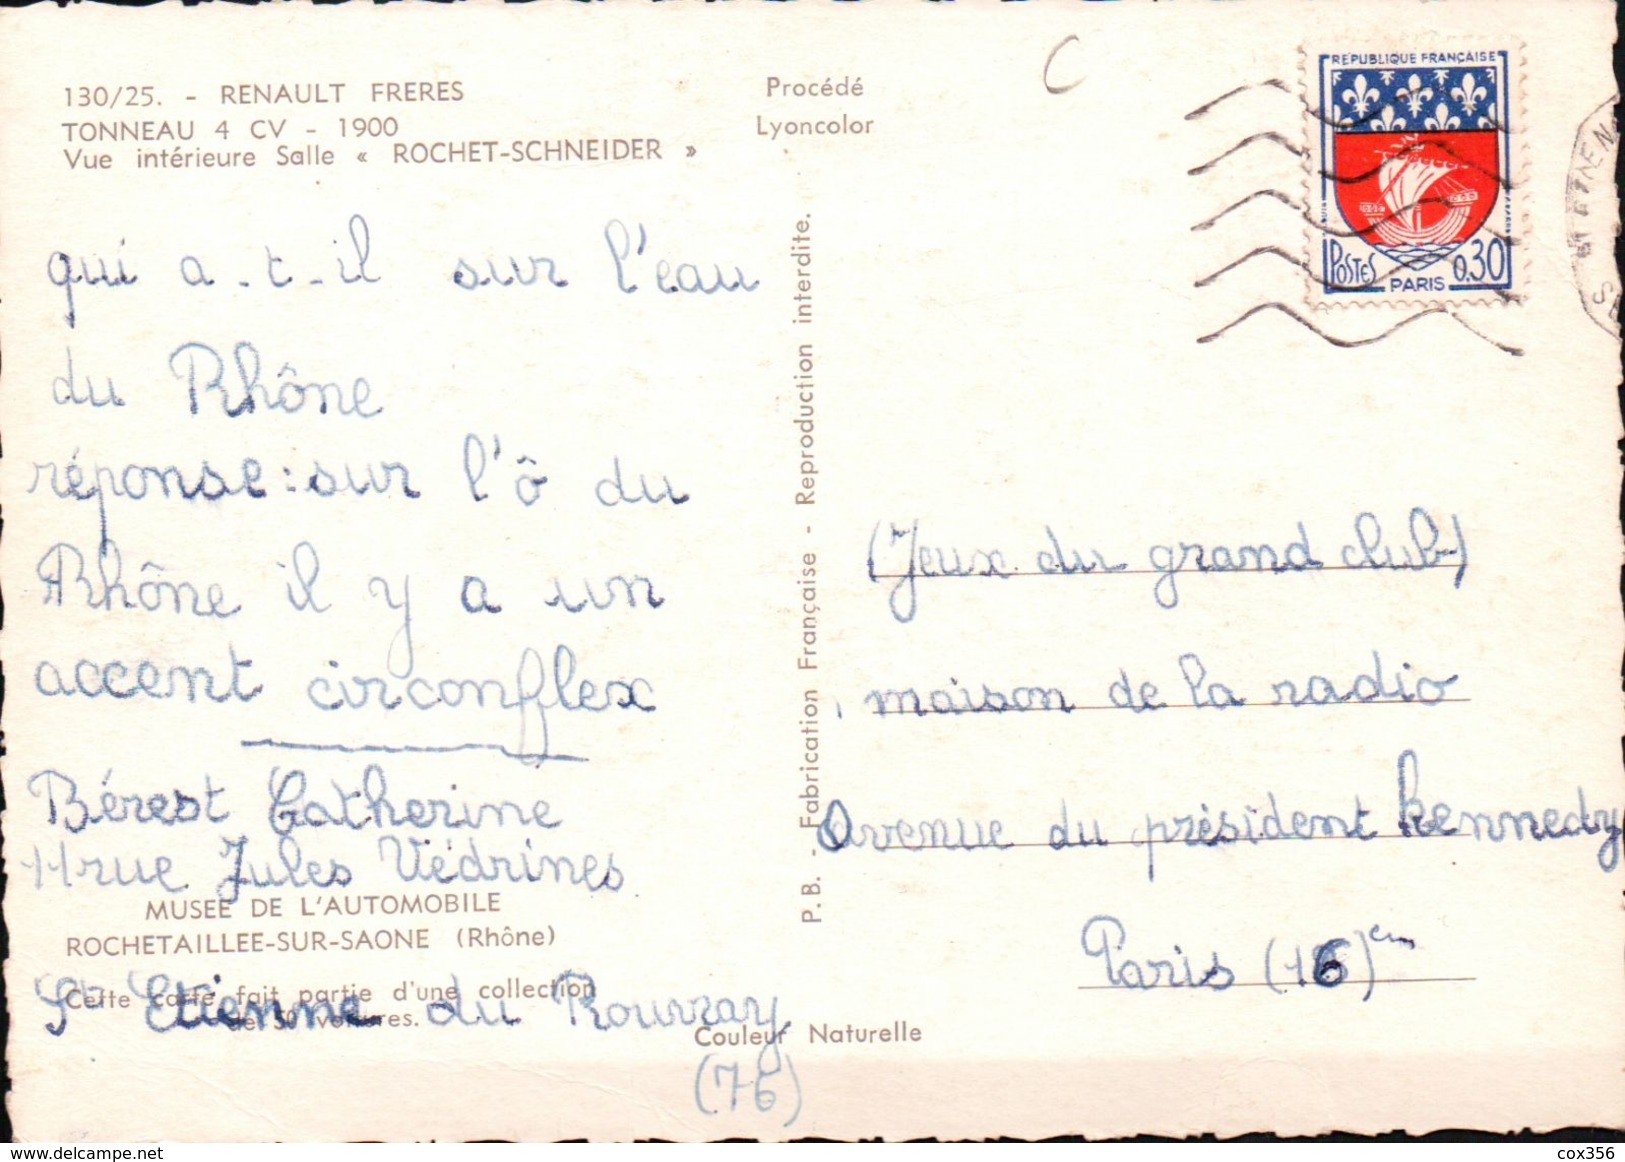 130/25. - RENAULT FRERES
TONNEAU 4 CV - 1900
Vue intérieure Salle « ROCHET-SCHNEIDER »
Procédé
Lyoncolor
C
REPUBLIQUE FRANÇAISE
POSTES
PARIS
0.30
qui a-t-il sur l'eau
du Rhône
réponse: sur l'ô du
Rhône il y a un
accent circonflex
Bérest Catherine
11 rue Jules Védrines
MUSEE DE L'AUTOMOBILE
ROCHETAILLEE-SUR-SAONE (Rhône)
Cette carte fait partie d'une collection
de 50 voitures.
St Etienne du Rouvray
(76)
Couleur Naturelle
P.B. - Fabrication Française - Reproduction interdite.
(Jeux du grand club)
maison de la radio
avenue du président kennedy
Paris (16)em
www.delcampe.net
cox356